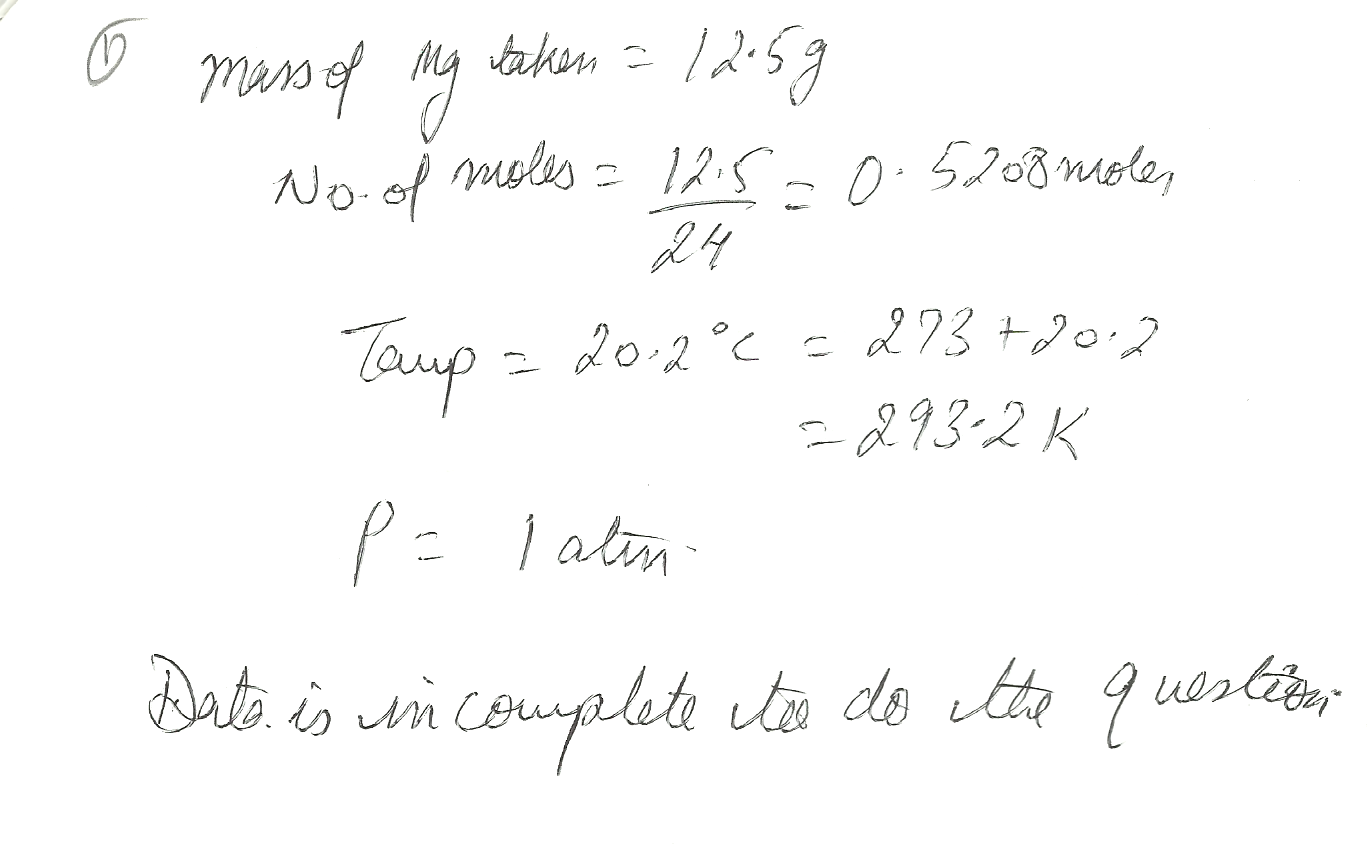 ① Mass of Mg taken = 12.5g
No. of moles = 12.5/24 = 0.5208 moles
Temp = 20.2°C = 273 + 20.2
= 293.2 K
P = 1 atm.
Data is incomplete to do the question